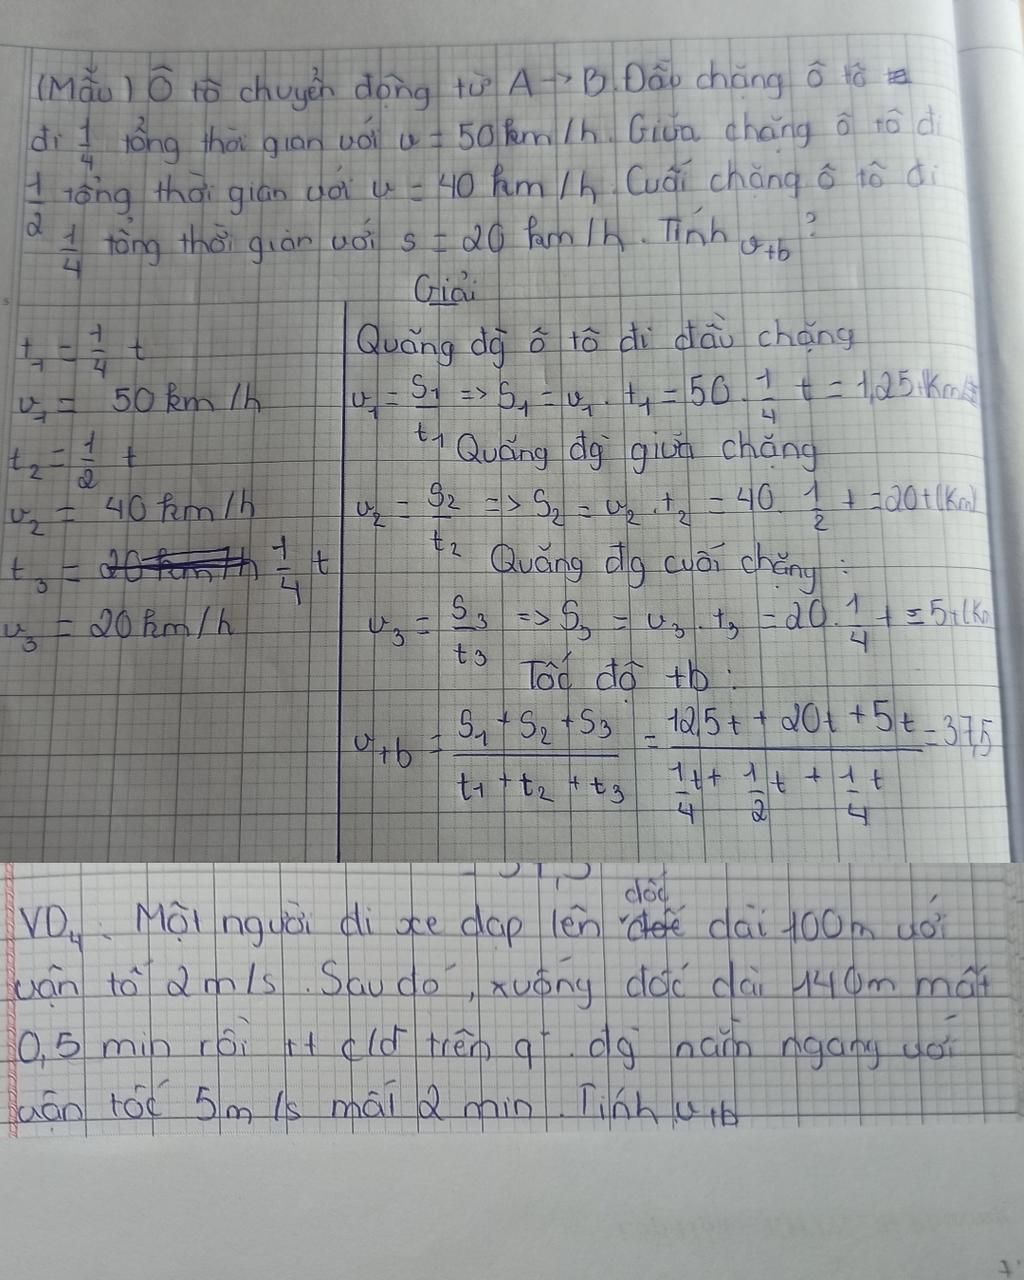 (Mẫu) Ô tô chuyển động từ A → B. Đầu chặng ô tô
đi 1/4 tổng thời gian với v = 50 km/h. Giữa chặng ô tô đi
1/2 tổng thời gian với v = 40 km/h. Cuối chặng ô tô đi
1/4 tổng thời gian với s = 20 km/h. Tính v+b?
Giải
t1 = 1/4 t
v1 = 50 km/h
t2 = 1/2 t
v2 = 40 km/h
t3 = 1/4 t
v3 = 20 km/h
Quãng đg ô tô đi đầu chặng
v1 = S1/t1 => S1 = v1 . t1 = 50 . 1/4 t = 12,5t Km
Quãng đg giữa chặng
v2 = S2/t2 => S2 = v2 . t2 = 40 . 1/2 t = 20t (Km)
Quãng đg cuối chặng :
v3 = S3/t3 => S3 = v3 . t3 = 20 . 1/4 t = 5t (Km
Tốc độ +b :
v+b = (S1 + S2 + S3)/(t1 + t2 + t3) = (12,5t + 20t + 5t)/(1/4 t + 1/2 t + 1/4 t) = 37,5
VD4. Một người đi xe đạp lên dốc dài 100m với
vận tố 2 m/s. Sau đó, xuống dốc dài 140m mất
0,5 min rồi tt c/đ trên q. đg nằm ngang với
vận tốc 5m/s mất 2 min. Tính v+b